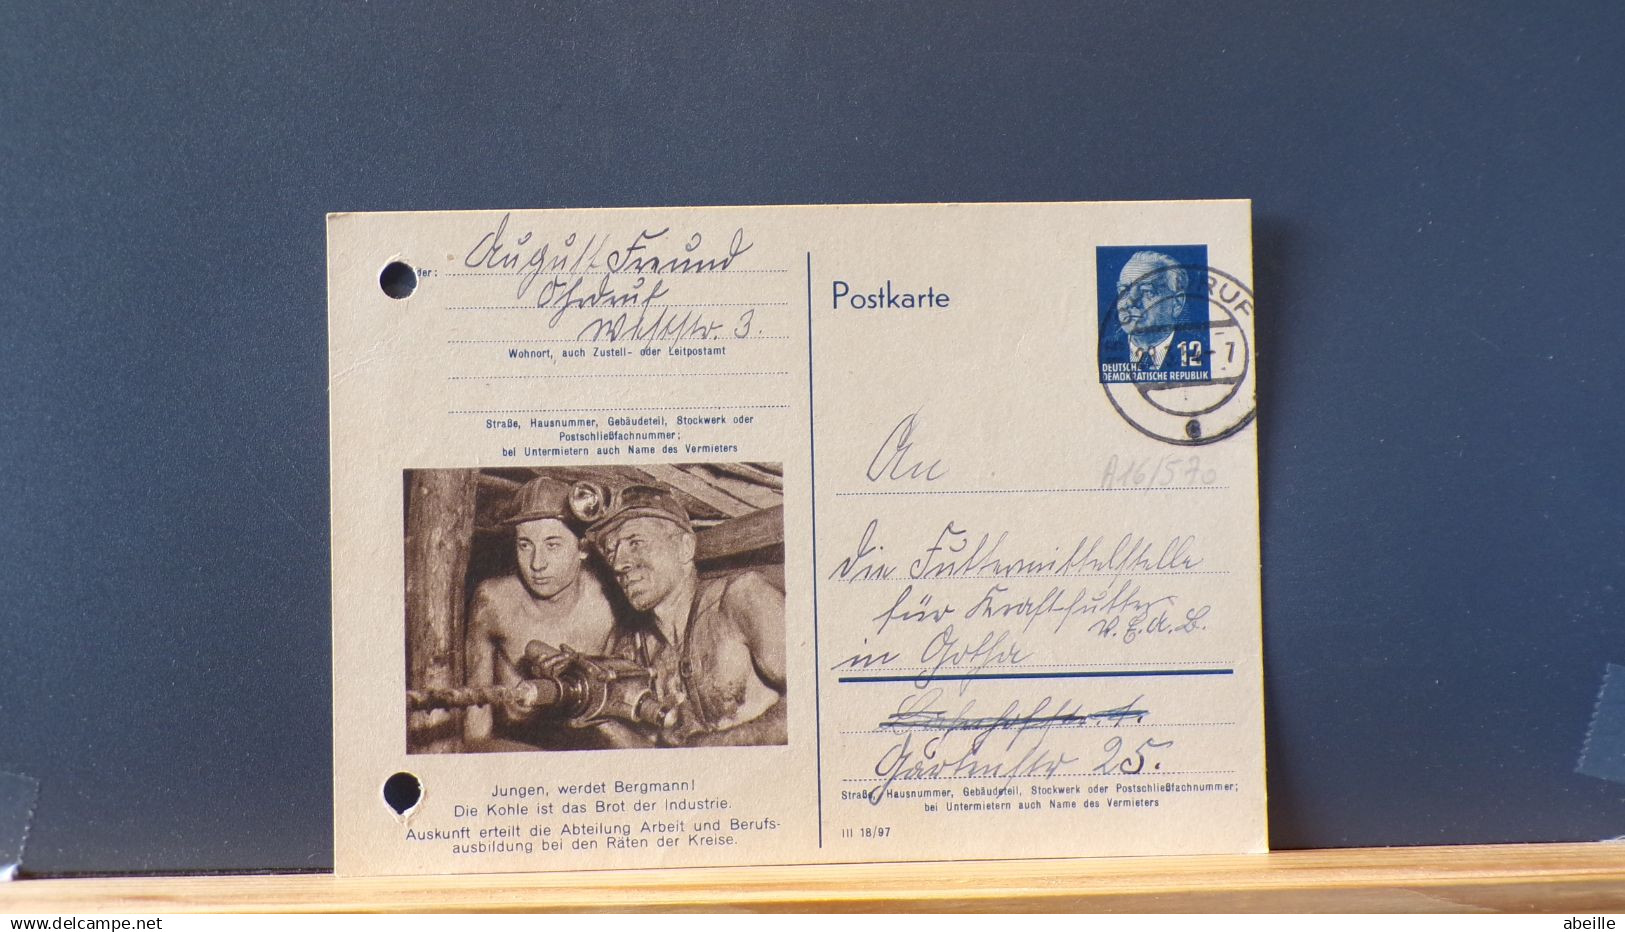 der: August Freund
Ohrdruf
Weststr. 3.
Wohnort, auch Zustell- oder Leitpostamt
Straße, Hausnummer, Gebäudeteil, Stockwerk oder
Postschließfachnummer;
bei Untermietern auch Name des Vermieters
Jungen, werdet Bergmann!
Die Kohle ist das Brot der Industrie.
Auskunft erteilt die Abteilung Arbeit und Berufs-
ausbildung bei den Räten der Kreise.
Postkarte
12
DEUTSCHE
DEMOKRATISCHE REPUBLIK
OHRDRUF
e
An
A16/570
die Futtermittelstelle
für Kraftfutter
V.E.A.B.
in Gotha
Bahnhofstr. 1.
Gartenstr 25.
Straße, Hausnummer, Gebäudeteil, Stockwerk oder Postschließfachnummer;
bei Untermietern auch Name des Vermieters
III 18/97
abeille